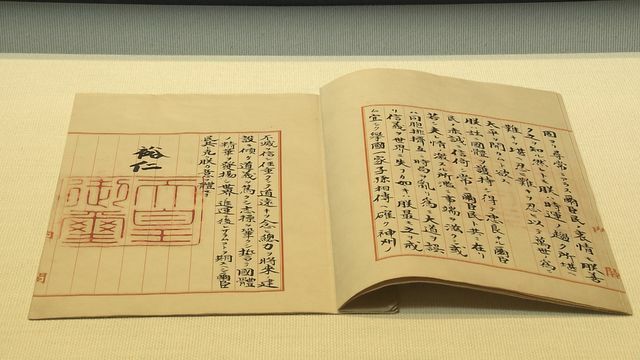 固ヨリ尋常ニアラス爾臣民ノ衷情モ朕善
ク之ヲ知ル然レトモ朕ハ時運ノ趨ク所堪ヘ
難キヲ堪ヘ忍ヒ難キヲ忍ヒ以テ萬世ノ爲ニ
太平ヲ開カムト欲ス
朕ハ茲ニ國體ヲ護持シ得テ忠良ナル爾臣
民ノ赤誠ニ信倚シ常ニ爾臣民ト共ニ在リ
若シ夫レ情ノ激スル所濫ニ事端ヲ滋クシ或
ハ同胞排擠互ニ時局ヲ亂リ爲ニ大道ヲ誤
リ信義ヲ世界ニ失フカ如キハ朕最モ之ヲ戒
ム宜シク擧國一家子孫相傳ヘ確ク神州ノ
内閣
不滅ヲ信シ任重クシテ道遠キヲ念ヒ總力ヲ將來ノ建
設ニ傾ケ道義ヲ篤クシ志操ヲ鞏クシ誓テ國體
ノ精華ヲ發揚シ世界ノ進運ニ後レサラムコトヲ期スヘシ爾臣
民其レ克ク朕カ意ヲ體セヨ
裕仁
天皇御璽
内閣